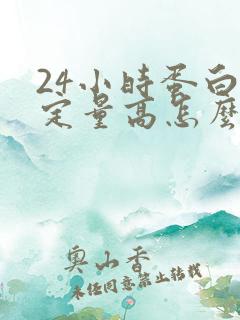 24小時蛋白
定量高怎麼
奧山香
未經同意禁止轉載